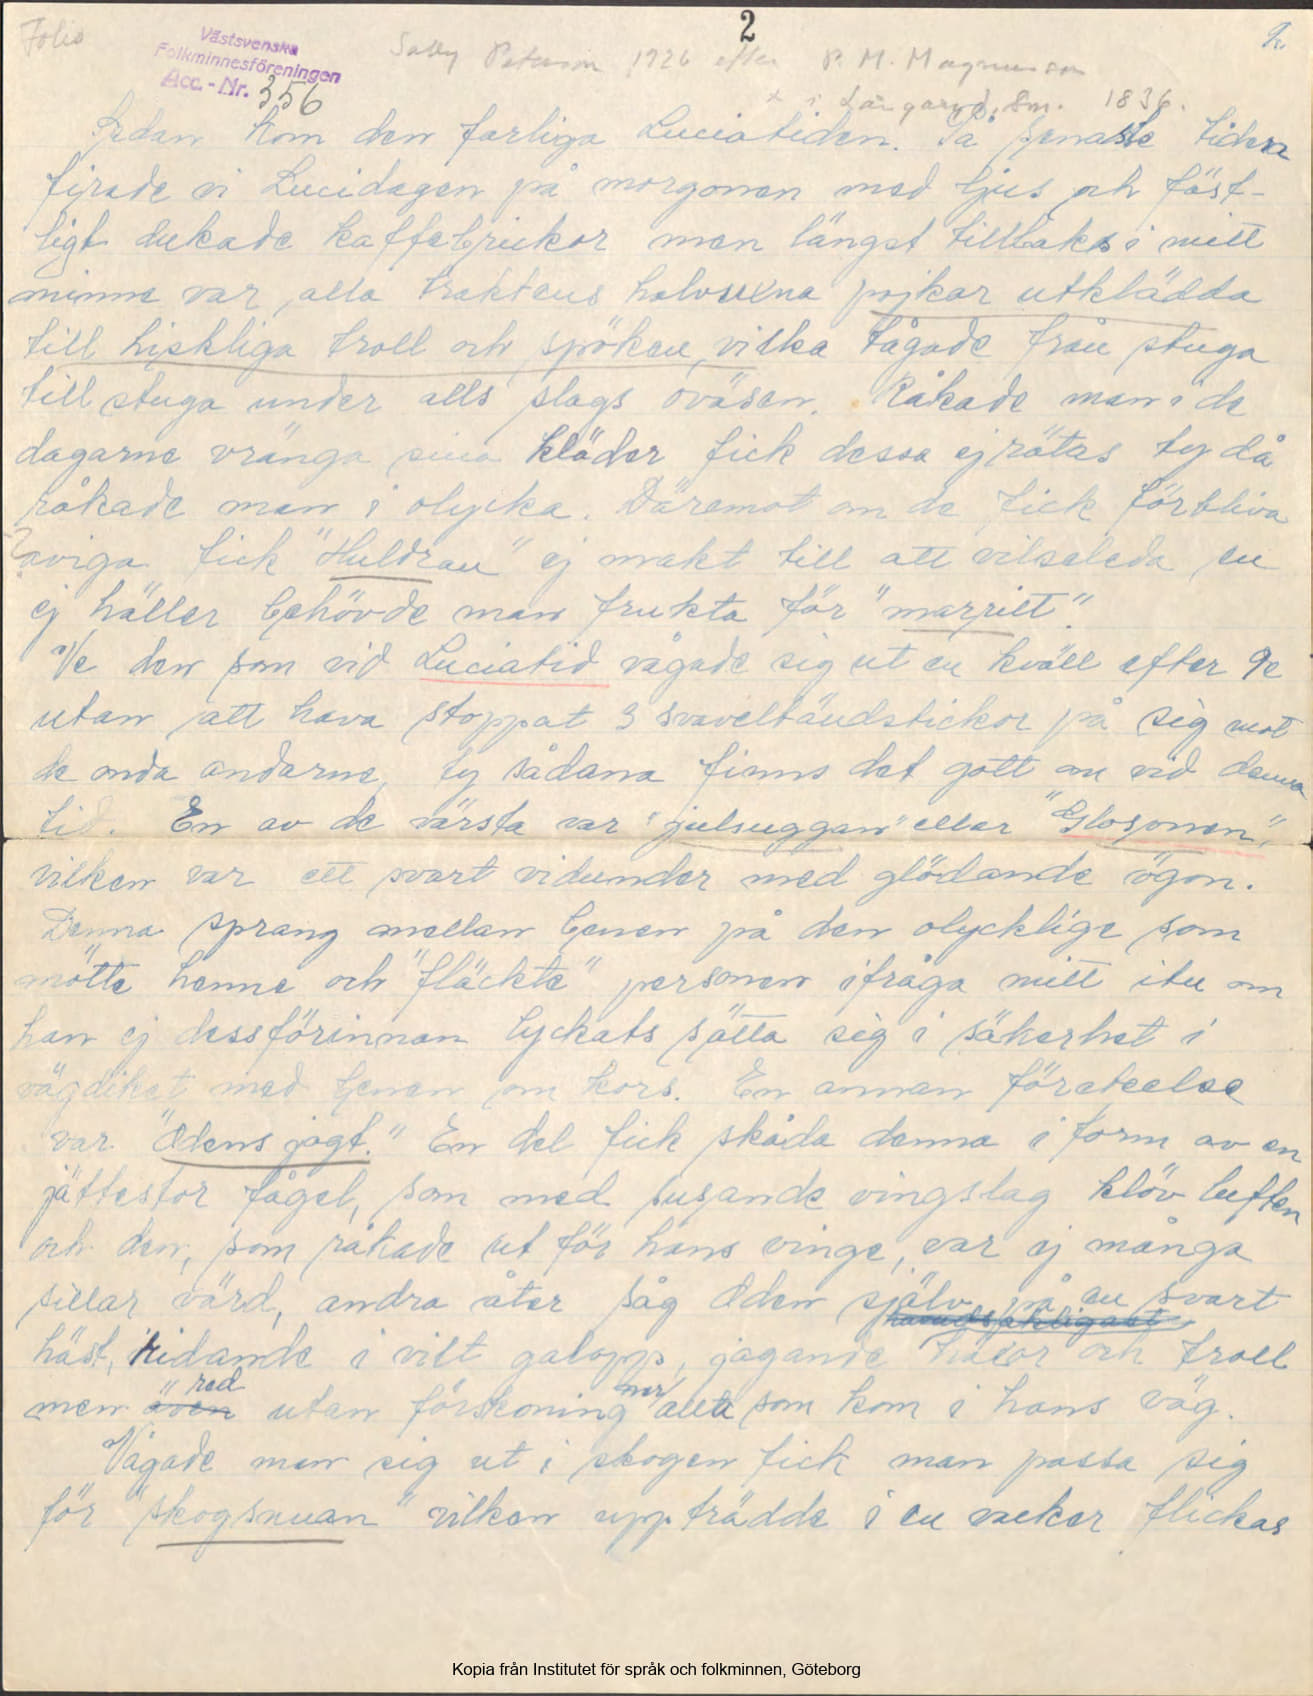 Folio
2
2.
Västsvenska
Folkminnesföreningen
Acc.-Nr. 356
Sally Peterson 1926 efter P. M. Magnusson
i Långaryd, Sm. 1836.
Sedan kom den farliga Luciatiden. På senaste tiden
firade vi Lucidagen på morgonen med ljus och fäst-
ligt dukade kaffebrickor men längst tillbaka i mitt
minne var alla traktens halvvuxna pojkar utklädda
till hiskliga troll och spöken, vilka tågade från stuga
till stuga under alls slags oväsen. Råkade man i de
dagarne vränga sina kläder fick dessa ej rätas ty då
råkade man i olycka. Däremot om de fick förbliva
aviga fick "Huldran" ej makt till att vilseleda en
ej häller behövde man frukta för "marritt".
Ve den som vid Luciatid vågade sig ut en kväll efter 9e
utan att hava stoppat 3 svaveltändstickor på sig mot
de onda andarne, ty sådana finns det gott om vid denna
tid. En av de värsta var "julsuggan" eller "Glosonen",
vilken var ett svart vidunder med glödande ögon.
Denna sprang mellan benen på den olycklige som
mötte henne och "fläckte" personen ifråga mitt itu om
han ej dessförinnan lyckats sätta sig i säkerhet i
vägdiket med benen om kors. En annan företeelse
var "Odens jagt." En del fick skåda denna i form av en
jättestor fågel, som med susande vingslag klöv luften
och den, som råkade ut för hans vinge, var ej många
sillar värd, andra åter såg Oden själv på en svart
häst, ridande i vilt galopp, jagande häxor och troll
men även red utan förskoning ner allt som kom i hans väg.
Vågade man sig ut i skogen fick man passa sig
för "skogsnuan" vilken uppträdde i en vacker flickas
Kopia från Institutet för språk och folkminnen, Göteborg